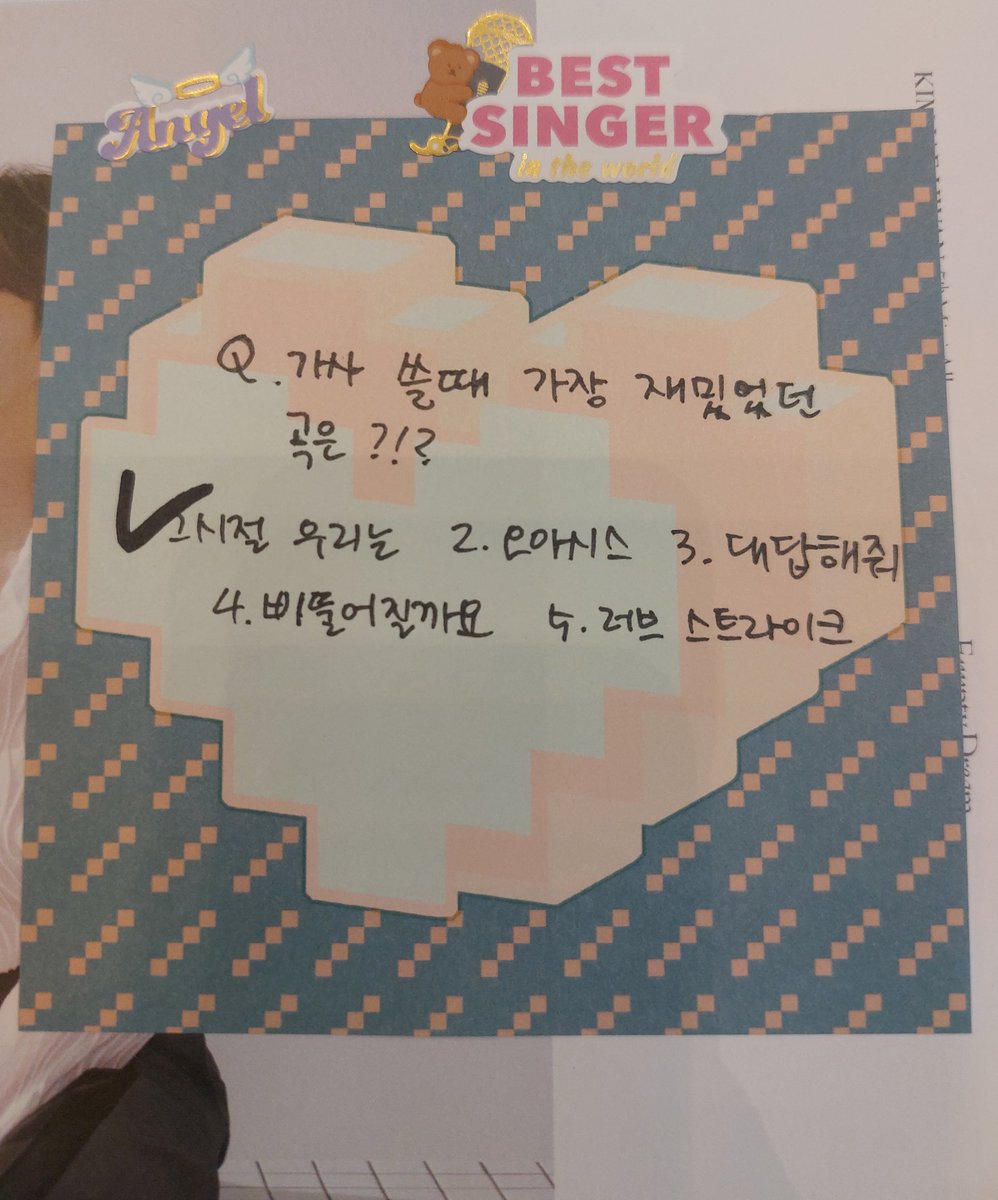 Angel
BEST
SINGER
in the world
Q. 가사 쓸때 가장 재밌었던
곡은 ?!?
그시절 우리는 2. 오아시스 3. 대답해줘
4. 삐뚤어질까요 5. 러브 스트라이크
Empty Dream